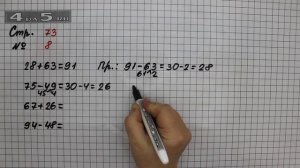 4 da 5.
Стр. 73
№ 8
28+63=91 Пр.: 91-63=30-2=28
61 2
75-49=30-4=26
45 4
67+26=
94-48=